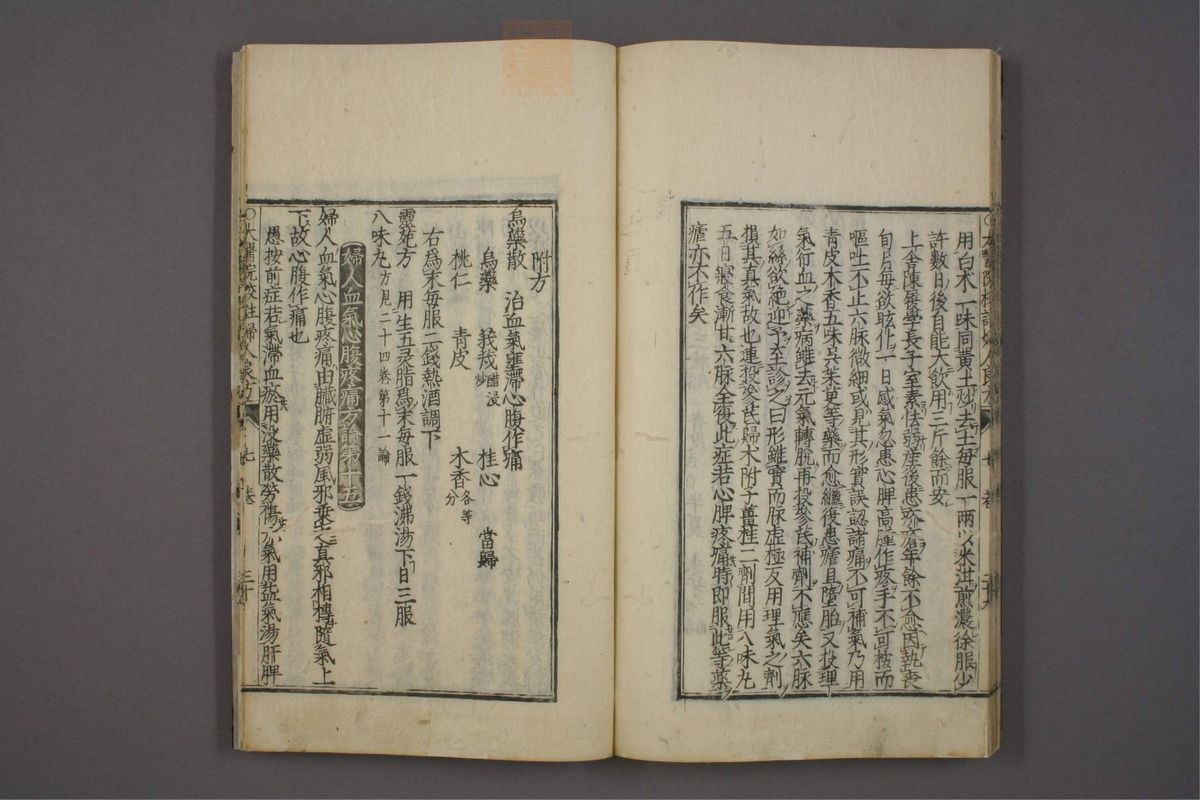 用白术一味同黃土炒去土每服一兩以米泔煎濃徐服少
許數日後自能大飲用二斤餘而安
上舍陳每學長子室素怯弱産後患瘧年餘不愈因執喪
旬月每欲眩仆一日感氣忽患心脾高腫作疼手不可按而
嘔吐不止六脉微細或見其形實誤認諸痛不可補氣乃用
青皮木香五味吳茱萸等藥而愈繼復患瘧且墮胎又投理
氣行血之藥病雖去元氣轉脫再投參芪補劑不應矣六脉
如絲欲絶迎予至診之曰形雖實而脉虚極反用理氣之劑
損其真氣故也連投參芪歸术附子薑桂二劑間用八味丸
五日寢食漸甘六脉全復此症若心脾疼痛時即服此等藥
瘧亦不作矣
附方
烏藥散 治血氣壅滯心腹作痛
烏藥 莪茂醋浸炒 桂心 當歸
桃仁 青皮 木香各等分
右爲末每服二錢熱酒調下
靈苑方 用生五灵脂爲末每服一錢沸湯下日三服
八味丸方見二十四卷第十一論
婦人血氣心腹疼痛方論第十五
婦人血氣心腹疼痛由臟腑虚弱風邪乗之真邪相摶隨氣上
下故心腹作痛也
愚按前症若氣滯血瘀用没藥散勞傷元氣用益氣湯肝脾
○太醫院校註婦人良方 七卷 三十